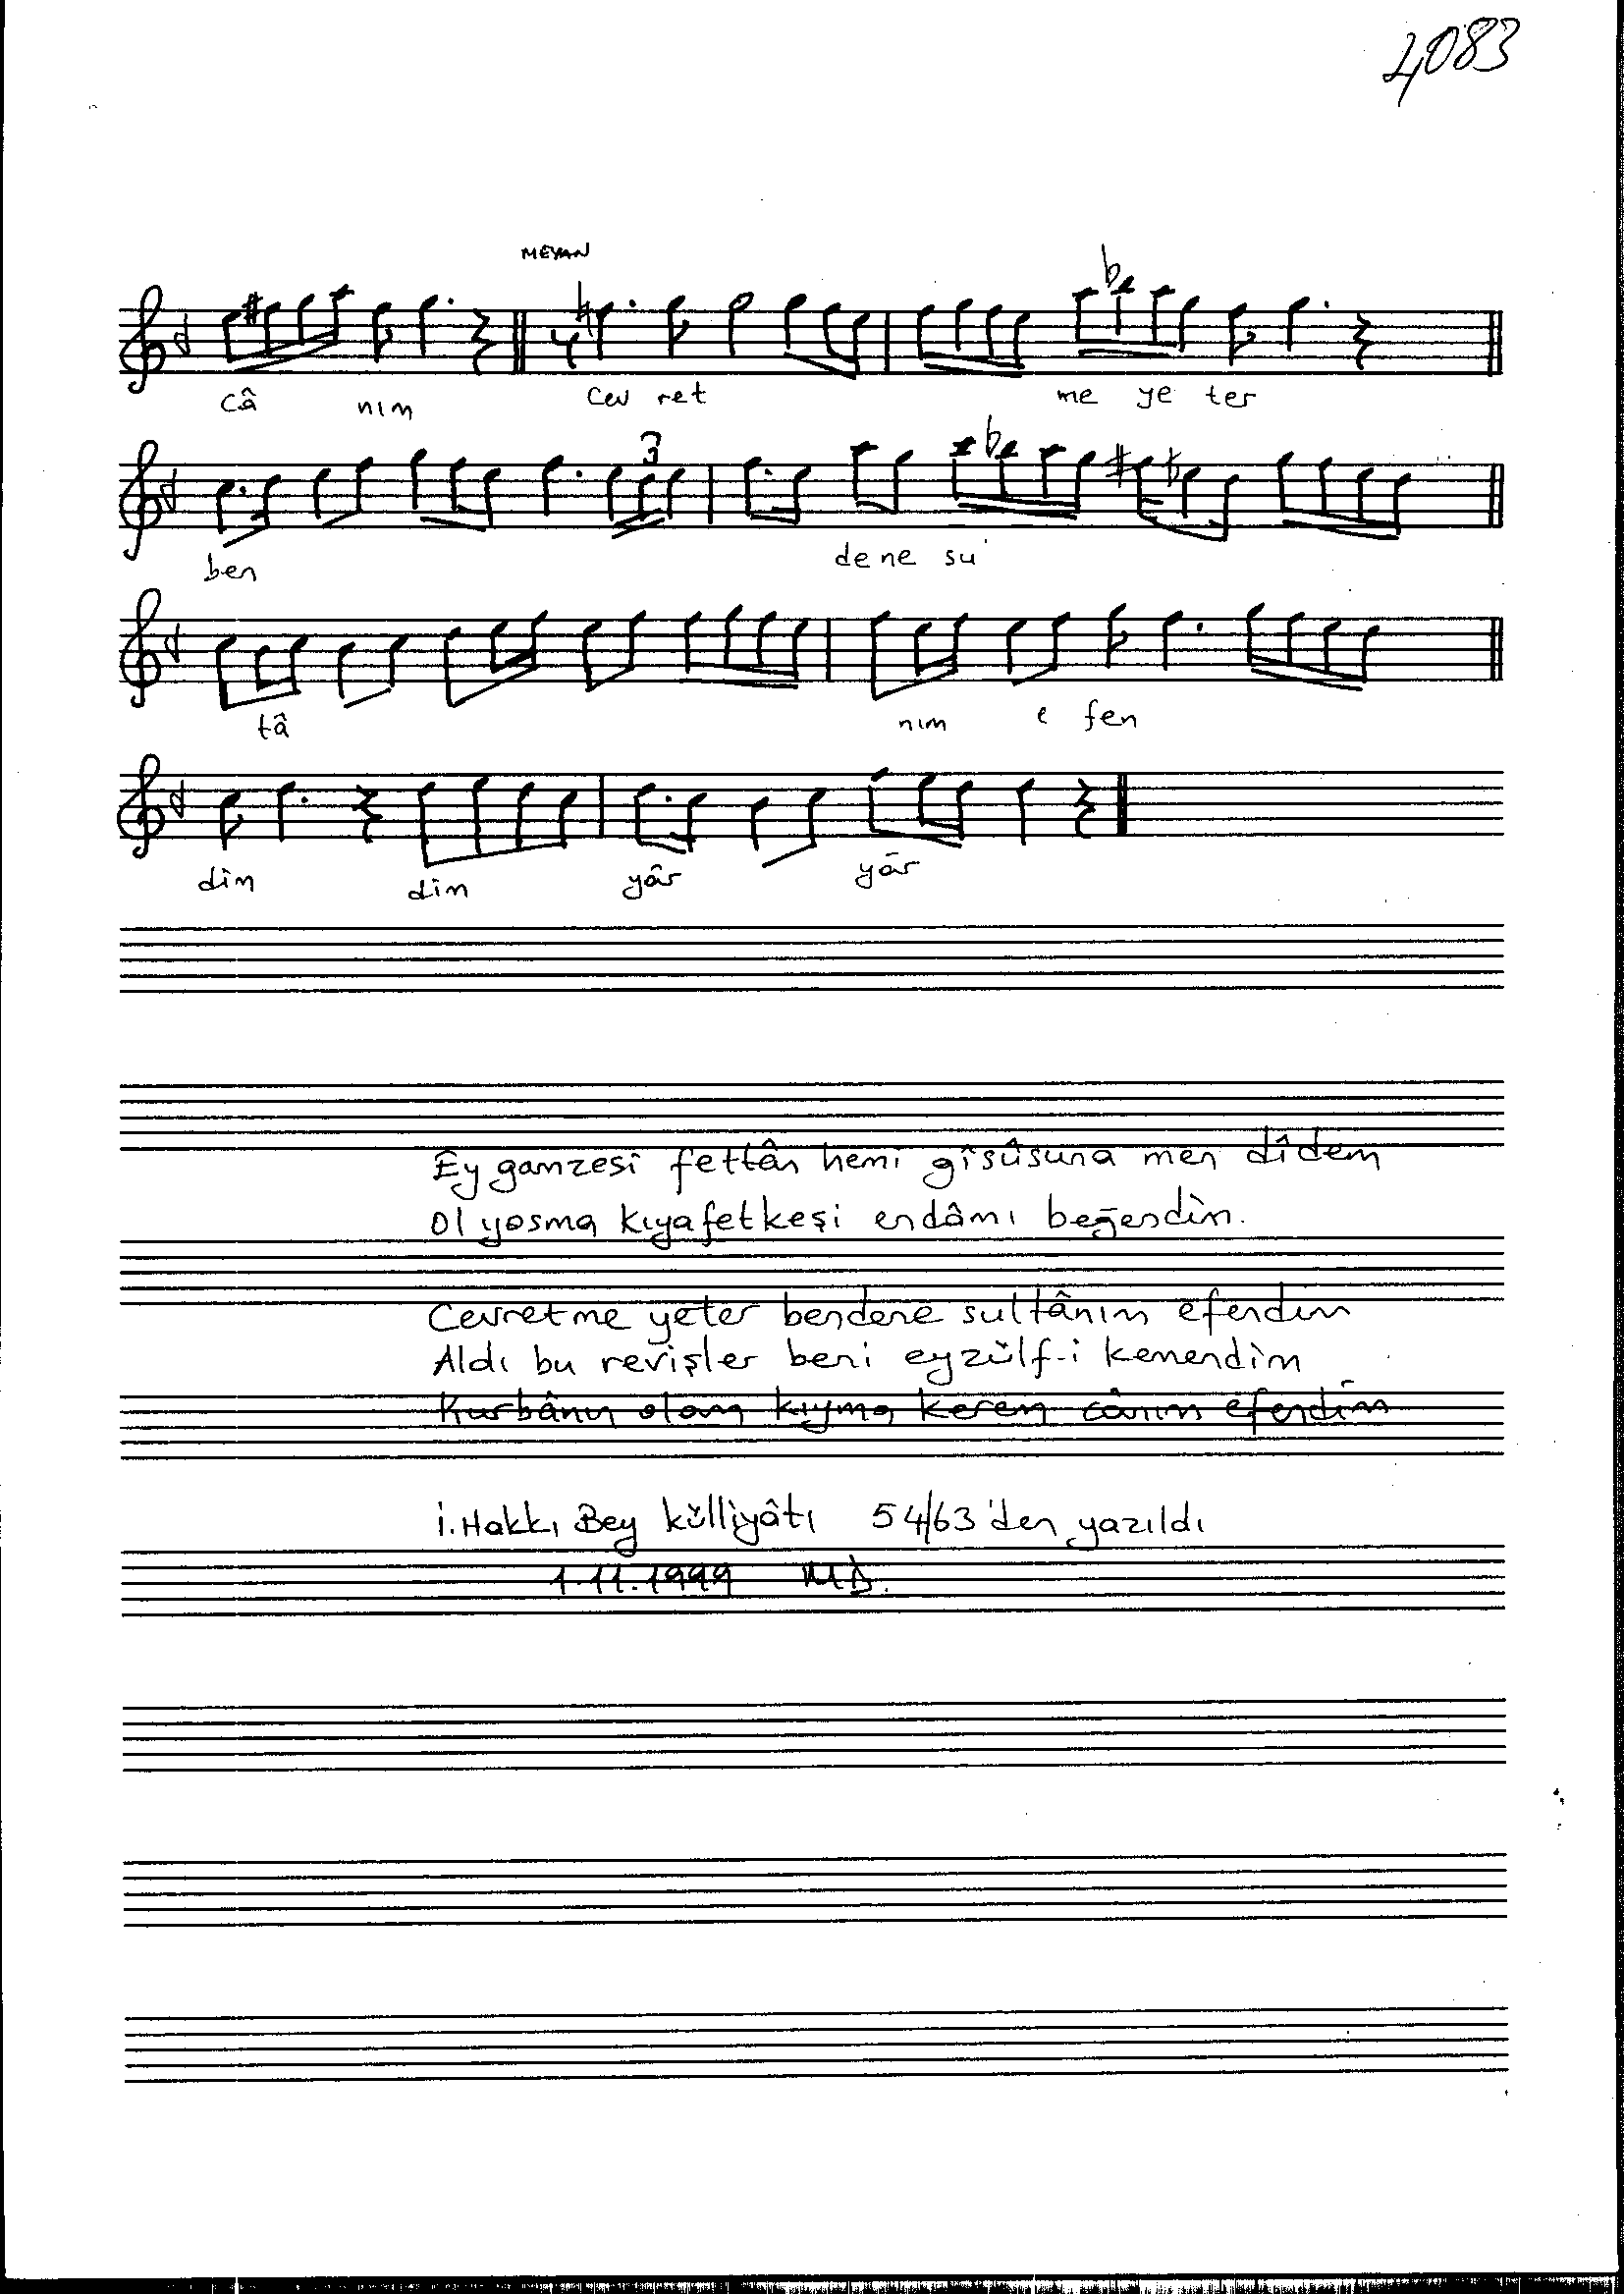 4083
MEYAN
câ nım cev ret me ye ter
3
ben de ne su
tâ nım e fen
dim dim yâr yâr
Ey gamzesi fettân hemi gîsûsuna men dîdem
Ol yosma kıyafetkeşi endâmı beğendim.
Cevretme yeter bendene sultânım efendim
Aldı bu revişler beni ey zülf-i kemendim
Kurbânın olam kıyma kerem cânım efendim
İ. Hakkı Bey külliyâtı 54/63'den yazıldı
1.11.1999 MD.